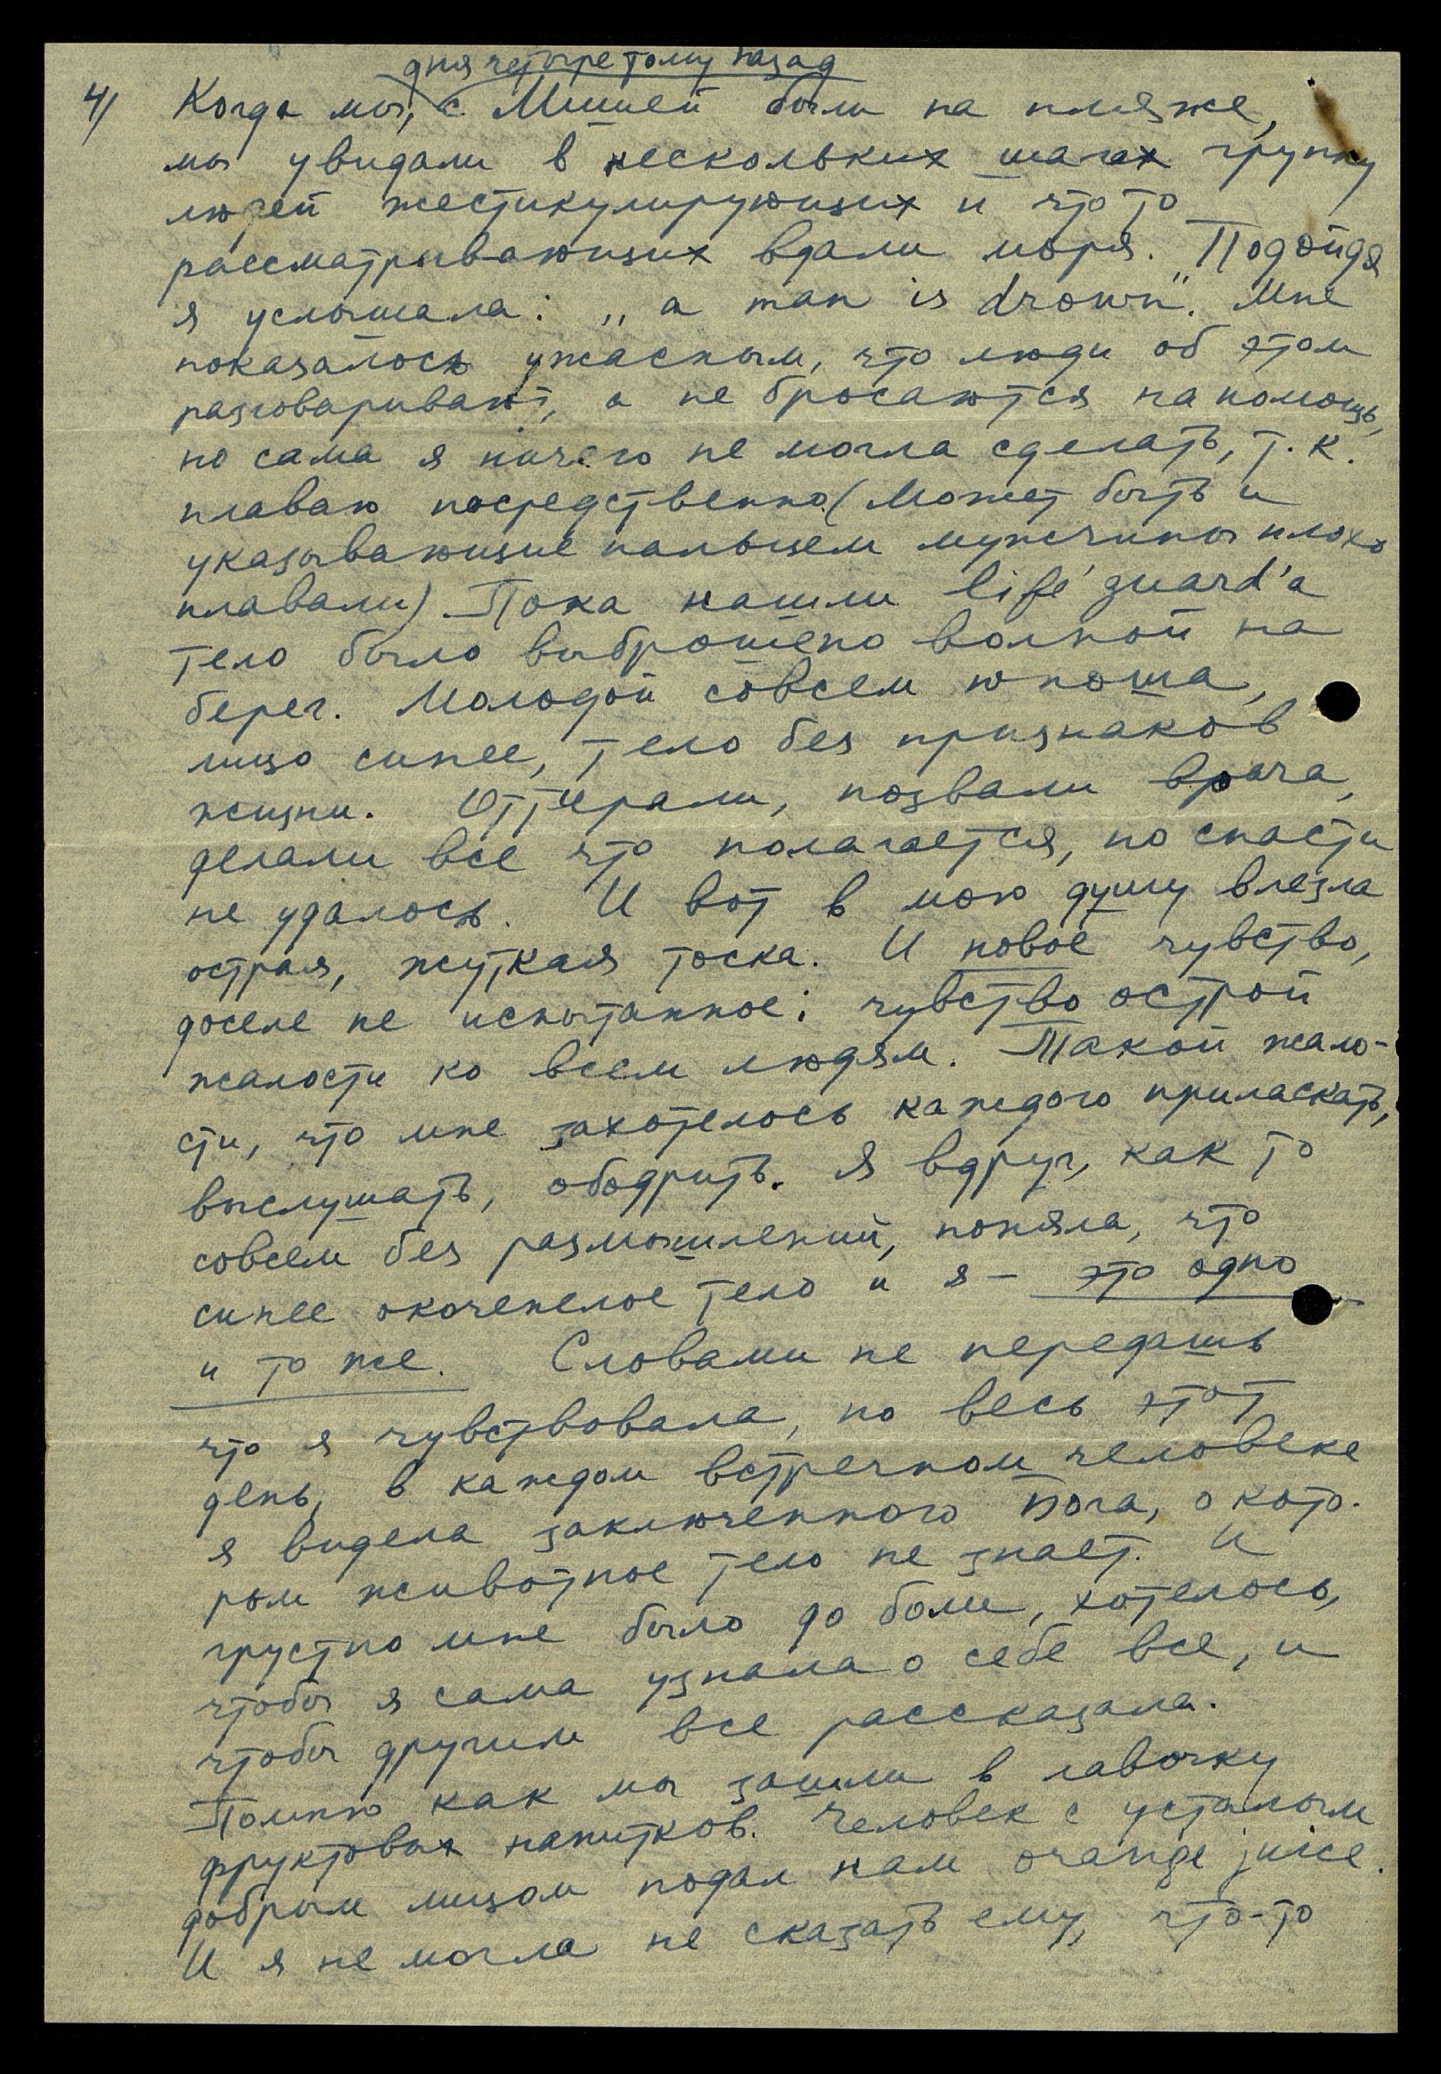 дня четыре тому назад
4/ Когда мы, с Мишей были на пляже,
мы увидали в нескольких шагах группу
людей жестикулирующих и что то
рассматривающих вдали моря. Подойдя
я услышала: „a man is drown". Мне
показалось ужасным, что люди об этом
разговаривают, а не бросаются на помощь,
но сама я ничего не могла сделать, т.к.
плаваю посредственно (Может быть и
указывающие пальцем мужчины плохо
плавали) Пока нашли life guard'а
тело было выброшено волной на
берег. Молодой совсем юноша,
лицо синее, тело без признаков
жизни. Оттирали, позвали врача,
делали все что полагается, но спасти
не удалось. И вот в мою душу влезла
острая, жуткая тоска. И новое чувство,
доселе не испытанное: чувство острой
жалости ко всем людям. Такой жало-
сти, что мне захотелось каждого приласкать,
выслушать, ободрить. Я вдруг, как то
совсем без размышлений, поняла, что
синее окоченелое тело и я — это одно
и то же. Словами не передашь
что я чувствовала, но весь этот
день, в каждом встречном человеке
я видела заключенного Бога, о кото-
ром животное тело не знает. И
грустно мне было до боли, хотелось,
чтобы я сама узнала о себе все, и
чтобы другим все рассказала.
Помню как мы зашли в лавочку
фруктовых напитков. Человек с усталым
добрым лицом подал нам orange juice.
И я не могла не сказать ему, что-то